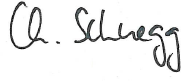 Ch. Schnegg